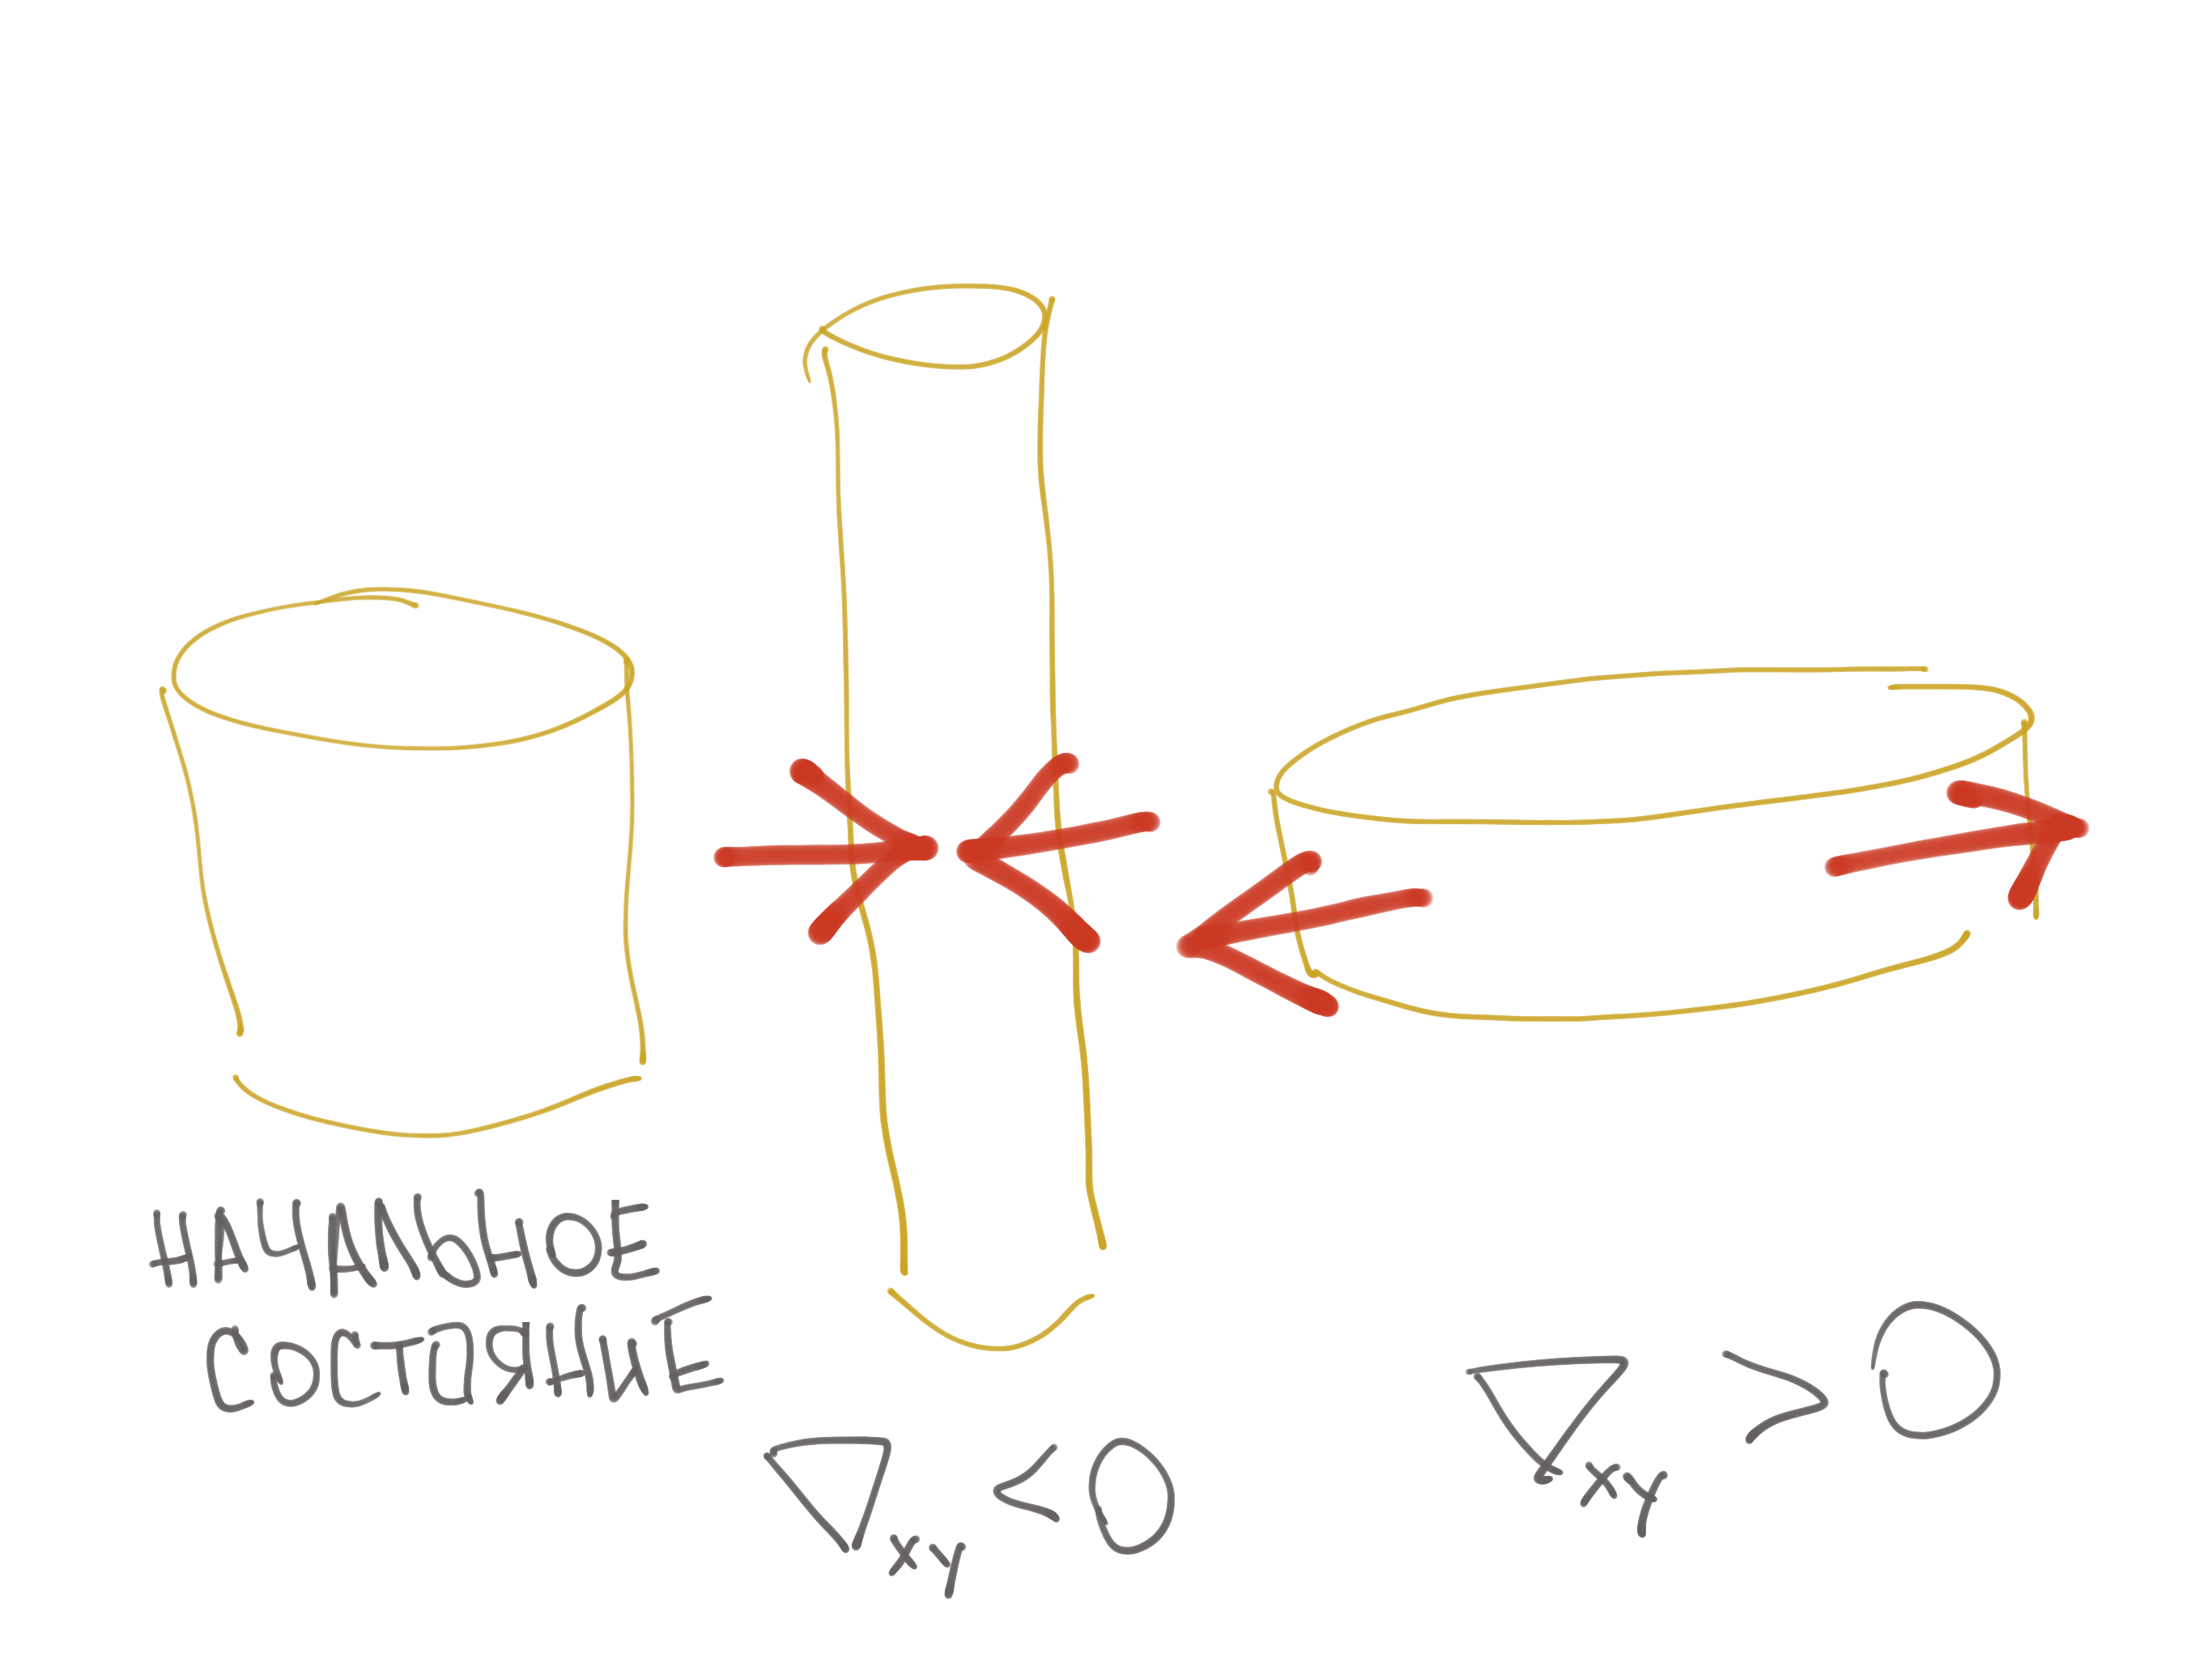 НАЧАЛЬНОЕ
СОСТОЯНИЕ
∇xy < 0
∇xy > 0